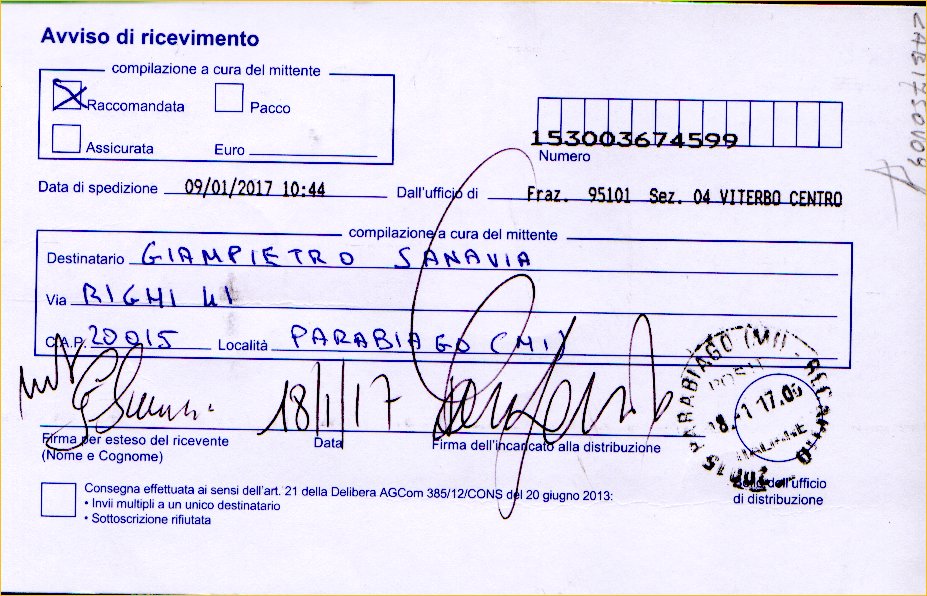 Avviso di ricevimento
compilazione a cura del mittente
Raccomandata Pacco
Assicurata Euro
153003674599
Numero
Data di spedizione 09/01/2017 10:44 Dall'ufficio di Fraz. 95101 Sez. 04 VITERBO CENTRO
compilazione a cura del mittente
Destinatario GIAMPIETRO SANAVIA
Via RIGHI 41
C.A.P. 20015 Località PARABIAGO (MI)
18/1/17
Firma per esteso del ricevente Data Firma dell'incaricato alla distribuzione
(Nome e Cognome)
PARABIAGO (MI) RECAPITO
18.-1 17.00
20015
Bollo dell'ufficio
di distribuzione
Consegna effettuata ai sensi dell'art. 21 della Delibera AGCom 385/12/CONS del 20 giugno 2013:
• Invii multipli a un unico destinatario
• Sottoscrizione rifiutata